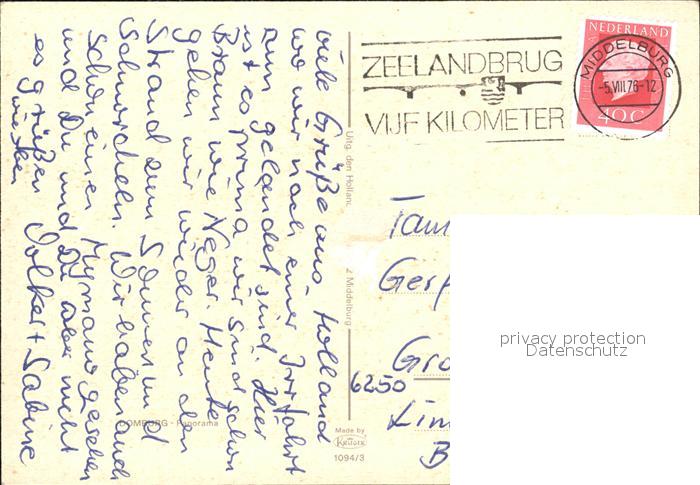 viele Grüße aus Holland
wo wir nach einer Irrfahrt
zum gelandet sind. Hier
ist es prima wir sind schon
Braun wie Neger. Heute
gehen wir wieder an den
Strand zum Sonnen und
Schnorcheln. Wir haben auch
schon einen gesehen
und Du und Du aber nicht
es grüßen Volker + Sabine
ZEELANDBRUG
VIJF KILOMETER
MIDDELBURG
-5.VIII.76-12
NEDERLAND
40 C
Uitg. den Hollant, Middelburg
privacy protection
Datenschutz
6250
DOMBURG - Panorama
Made by
1094/3